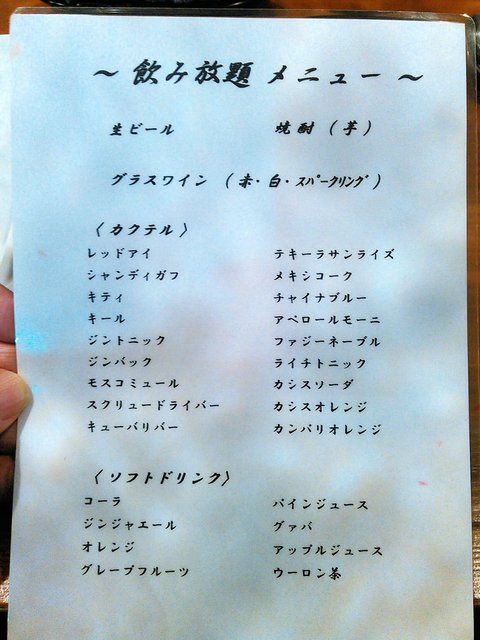 ～ 飲み放題 メニュー ～
生ビール 焼酎（芋）
グラスワイン（赤・白・スパークリング）
〈カクテル〉
レッドアイ テキーラサンライズ
シャンディガフ メキシコーク
キティ チャイナブルー
キール アペロールモーニ
ジントニック ファジーネーブル
ジンバック ライチトニック
モスコミュール カシスソーダ
スクリュードライバー カシスオレンジ
キューバリバー カンパリオレンジ
〈ソフトドリンク〉
コーラ パインジュース
ジンジャエール グァバ
オレンジ アップルジュース
グレープフルーツ ウーロン茶